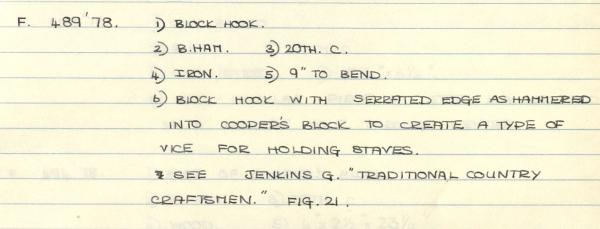 F. 489'78. 1) BLOCK HOOK.
2) B.HAM. 3) 20TH. C.
4) IRON. 5) 9" TO BEND.
6) BLOCK HOOK WITH SERRATED EDGE AS HAMMERED
INTO COOPER'S BLOCK TO CREATE A TYPE OF
VICE FOR HOLDING STAVES.
7 SEE JENKINS G. "TRADITIONAL COUNTRY
CRAFTSMEN." FIG. 21.